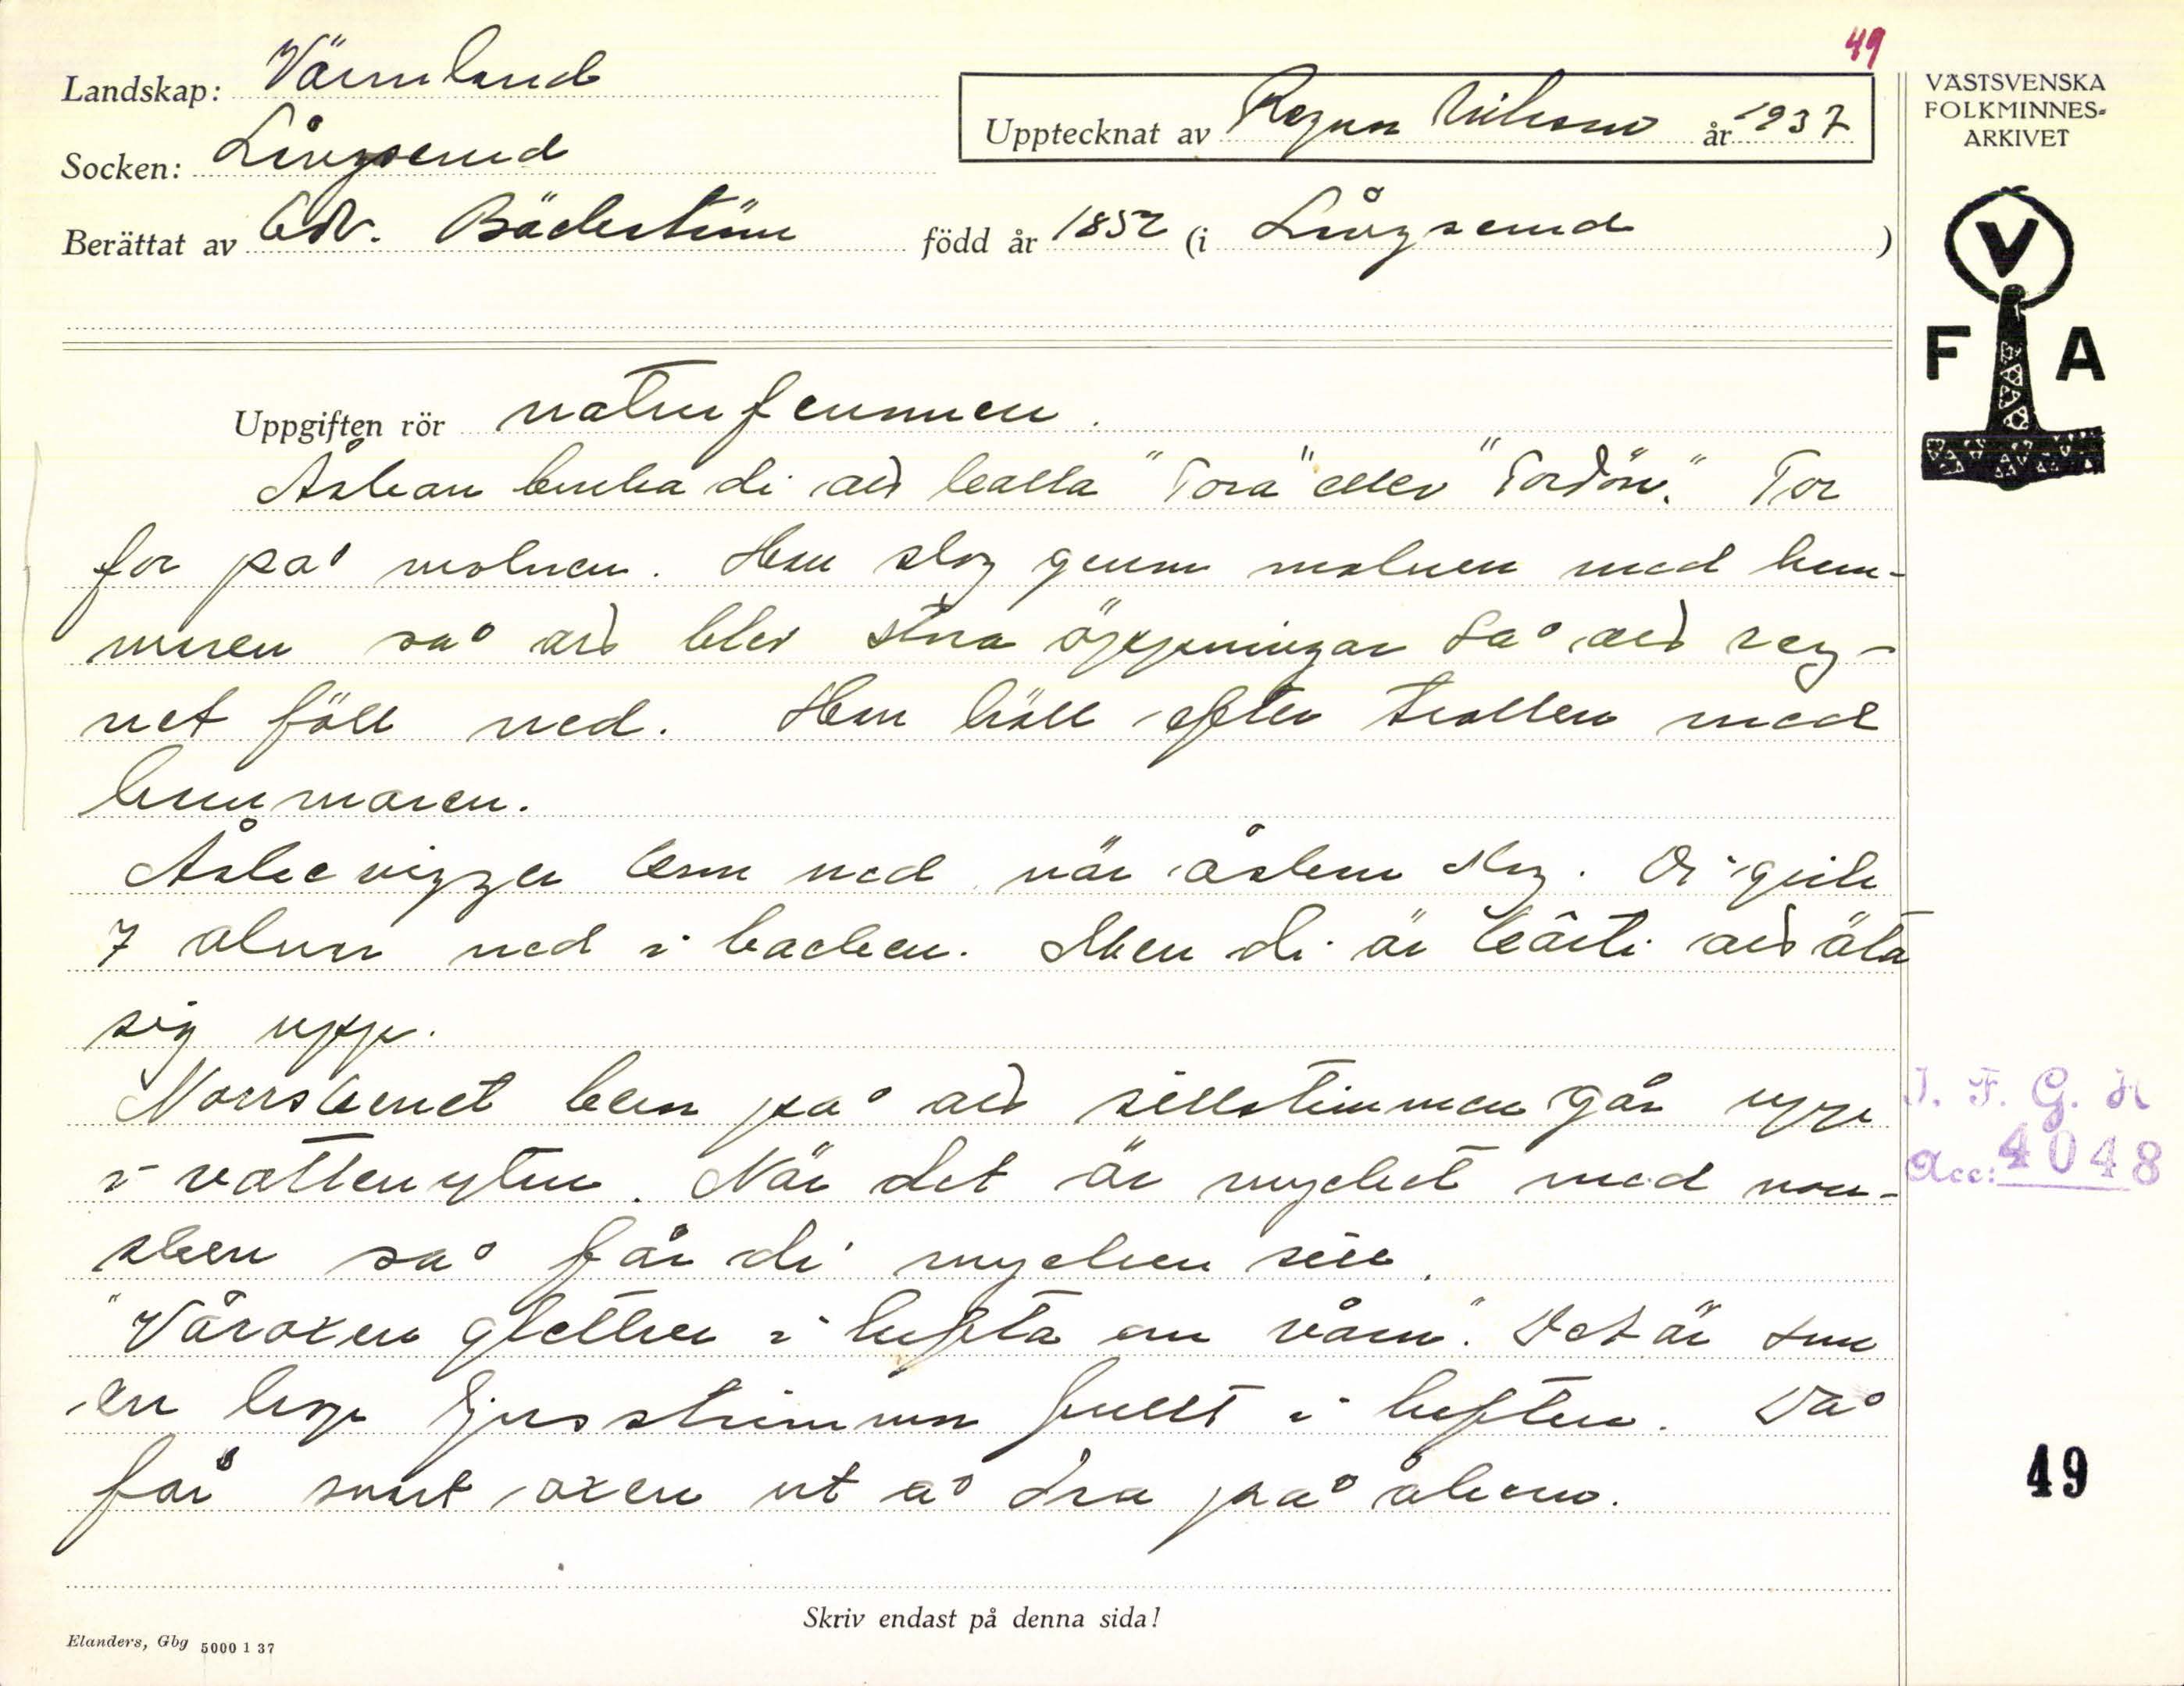 49
Landskap: Värmland
Socken: Långserud
Upptecknat av Ragnar Nilsson år 1937
Berättat av Edv. Bäckström född år 1852 (i Långserud)
VÄSTSVENSKA
FOLKMINNES-
ARKIVET
V
F A
Uppgiften rör naturfenomen.
Åskan bruka di ad kalla "Tora" eller "Tordön". Tor
for på molnen. Han slog genom molnen med ham-
maren så ad blev stora öppningar så ad reg-
net föll ned. Han höll efter trollen med
hammaren.
Åskeviggar kom ned när åskan slog. Di gick
7 alnar ned i backen. Men di är kåti ad äta
sig upp.
Norrskenet ber på ad sillstimmen går uppe
i vattenytan. När det är mycket med norr-
sken så får di mycken sill.
"Våroxen glettrer i lufta om vårn". Det är som
en hop ljusstrimmor fullt i luften. Då
får snart oxen ut å dra på åkern.
I. F. G. H
Acc: 4048
49
Skriv endast på denna sida!
Elanders, Gbg 5000 1 37